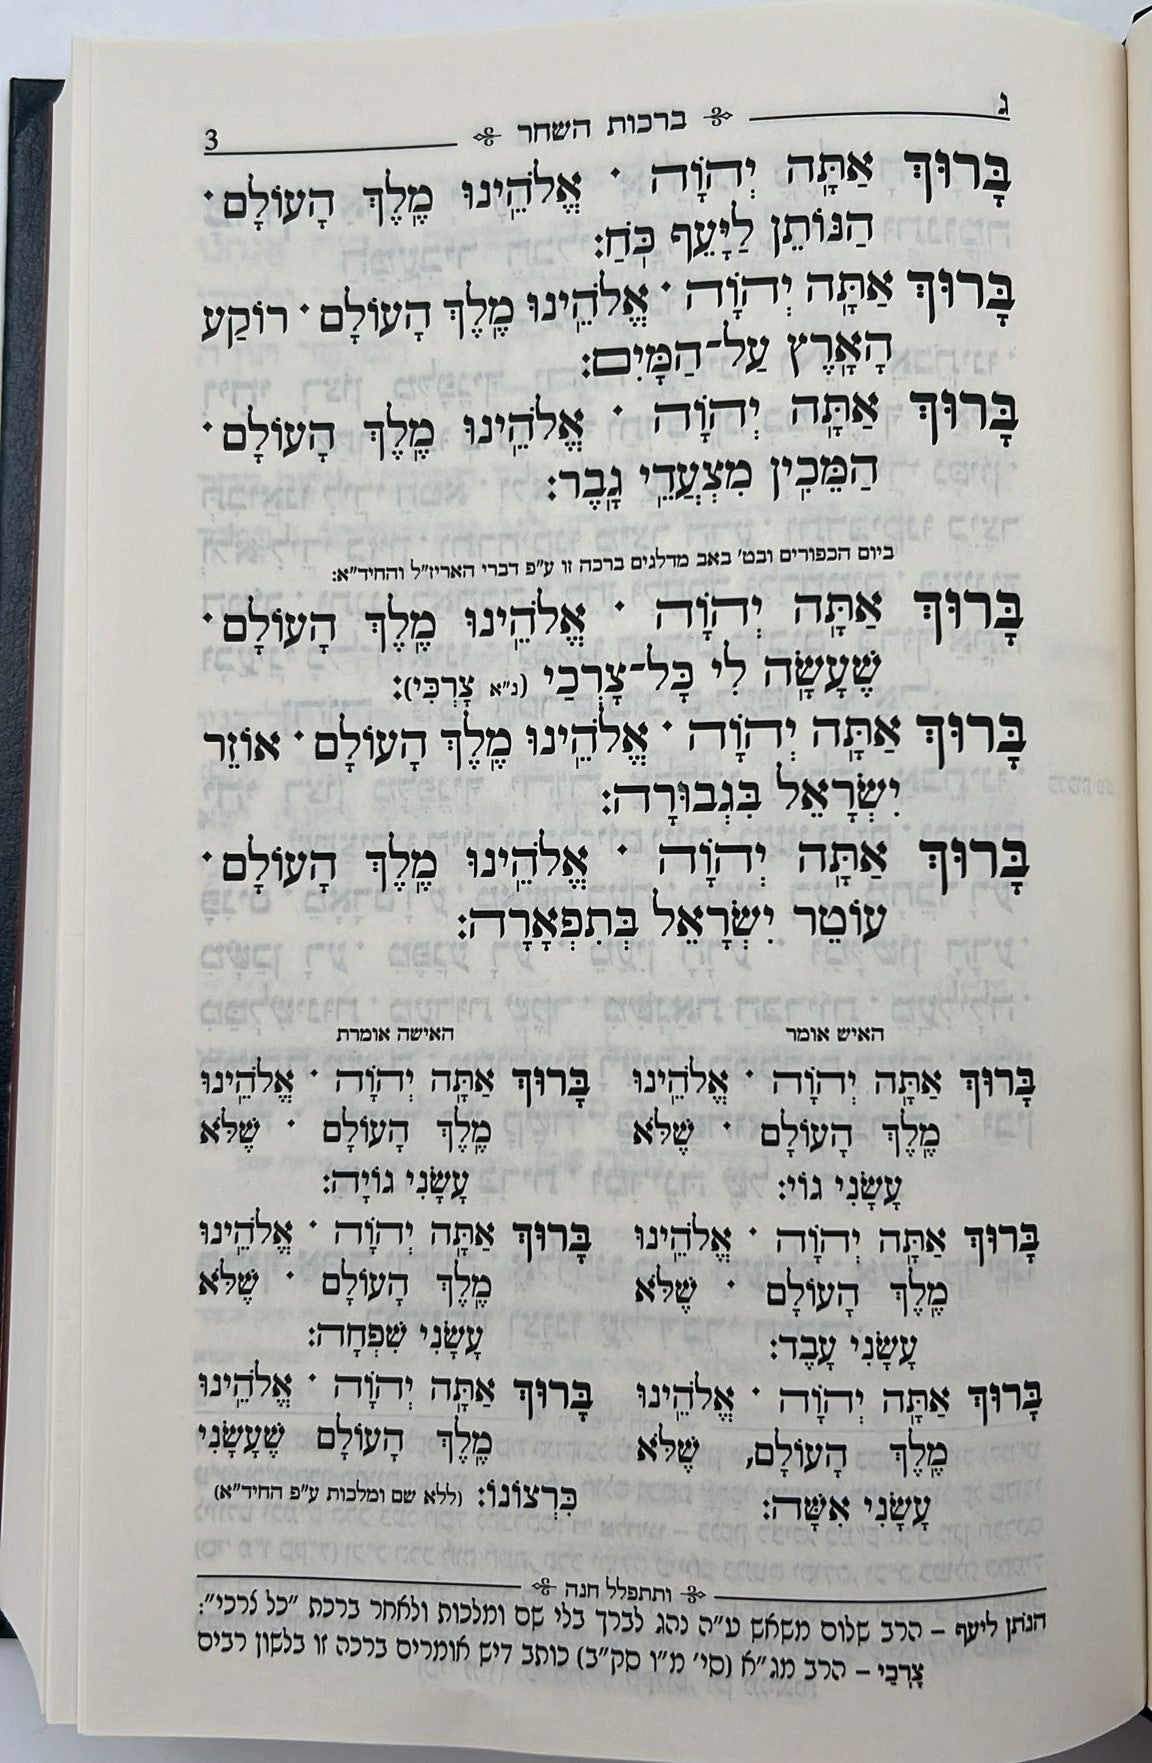 ג
ברכות השחר
3
בָּרוּךְ אַתָּה יְהֹוָה · אֱלֹהֵינוּ מֶלֶךְ הָעוֹלָם ·
הַנּוֹתֵן לַיָּעֵף כֹּחַ:
בָּרוּךְ אַתָּה יְהֹוָה · אֱלֹהֵינוּ מֶלֶךְ הָעוֹלָם · רוֹקַע
הָאָרֶץ עַל־הַמָּיִם:
בָּרוּךְ אַתָּה יְהֹוָה · אֱלֹהֵינוּ מֶלֶךְ הָעוֹלָם ·
הַמֵּכִין מִצְעֲדֵי גָבֶר:
ביום הכפורים ובט' באב מדלגים ברכה זו ע"פ דברי האריז"ל והחיד"א:
בָּרוּךְ אַתָּה יְהֹוָה · אֱלֹהֵינוּ מֶלֶךְ הָעוֹלָם ·
שֶׁעָשָׂה לִי כָּל־צָרְכַי (נ"א צָרְכִּי):
בָּרוּךְ אַתָּה יְהֹוָה · אֱלֹהֵינוּ מֶלֶךְ הָעוֹלָם · אוֹזֵר
יִשְׂרָאֵל בִּגְבוּרָה:
בָּרוּךְ אַתָּה יְהֹוָה · אֱלֹהֵינוּ מֶלֶךְ הָעוֹלָם ·
עוֹטֵר יִשְׂרָאֵל בְּתִפְאָרָה:
האיש אומר
בָּרוּךְ אַתָּה יְהֹוָה · אֱלֹהֵינוּ
מֶלֶךְ הָעוֹלָם · שֶׁלֹּא
עָשַׂנִי גוֹי:
בָּרוּךְ אַתָּה יְהֹוָה · אֱלֹהֵינוּ
מֶלֶךְ הָעוֹלָם · שֶׁלֹּא
עָשַׂנִי עָבֶד:
בָּרוּךְ אַתָּה יְהֹוָה · אֱלֹהֵינוּ
מֶלֶךְ הָעוֹלָם, שֶׁלֹּא
עָשַׂנִי אִשָּׁה:
האישה אומרת
בָּרוּךְ אַתָּה יְהֹוָה · אֱלֹהֵינוּ
מֶלֶךְ הָעוֹלָם · שֶׁלֹּא
עָשַׂנִי גּוֹיָה:
בָּרוּךְ אַתָּה יְהֹוָה · אֱלֹהֵינוּ
מֶלֶךְ הָעוֹלָם · שֶׁלֹּא
עָשַׂנִי שִׁפְחָה:
בָּרוּךְ אַתָּה יְהֹוָה · אֱלֹהֵינוּ
מֶלֶךְ הָעוֹלָם שֶׁעָשַׂנִי
כִּרְצוֹנוֹ: (ללא שם ומלכות ע"פ החיד"א)
ותתפלל חנה
הנותן ליעף – הרב שלום משאש ע"ה נהג לברך בלי שם ומלכות ולאחר ברכת "כל צרכי":
צָרְכַי – הרב מג"א (סי' מ"ו סק"ב) כותב דיש אומרים ברכה זו בלשון רבים